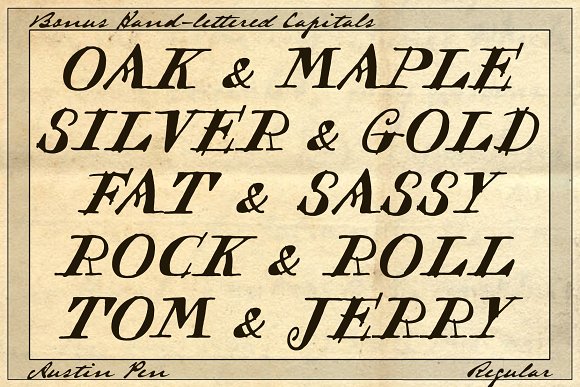 Bonus Hand-lettered Capitals
OAK & MAPLE
SILVER & GOLD
FAT & SASSY
ROCK & ROLL
TOM & JERRY
Austin Pen
Regular